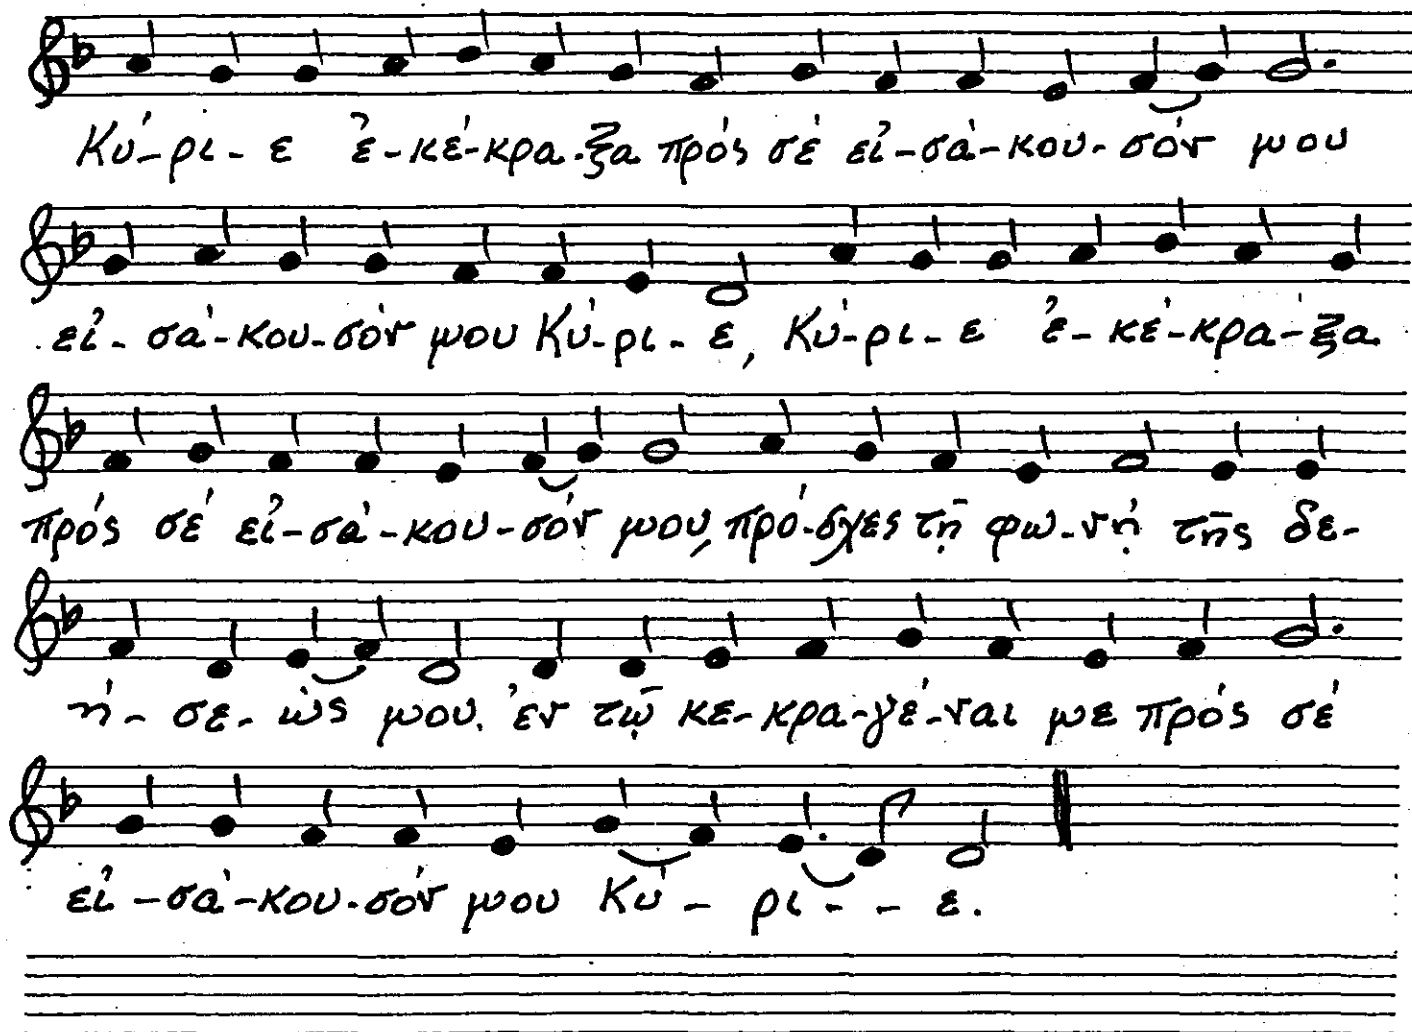 Κύ-ρι-ε ἐ-κέ-κρα-ξα πρός σέ εἰ-σά-κου-σόν μου
εἰ-σά-κου-σόν μου Κύ-ρι-ε, Κύ-ρι-ε ἐ-κέ-κρα-ξα
πρός σέ εἰ-σά-κου-σόν μου, πρό-σχες τῇ φω-νῇ τῆς δε-
ή-σε-ώς μου. ἐν τῷ κε-κρα-γέ-ναι με πρός σέ
εἰ-σά-κου-σόν μου Κύ-ρι--ε.